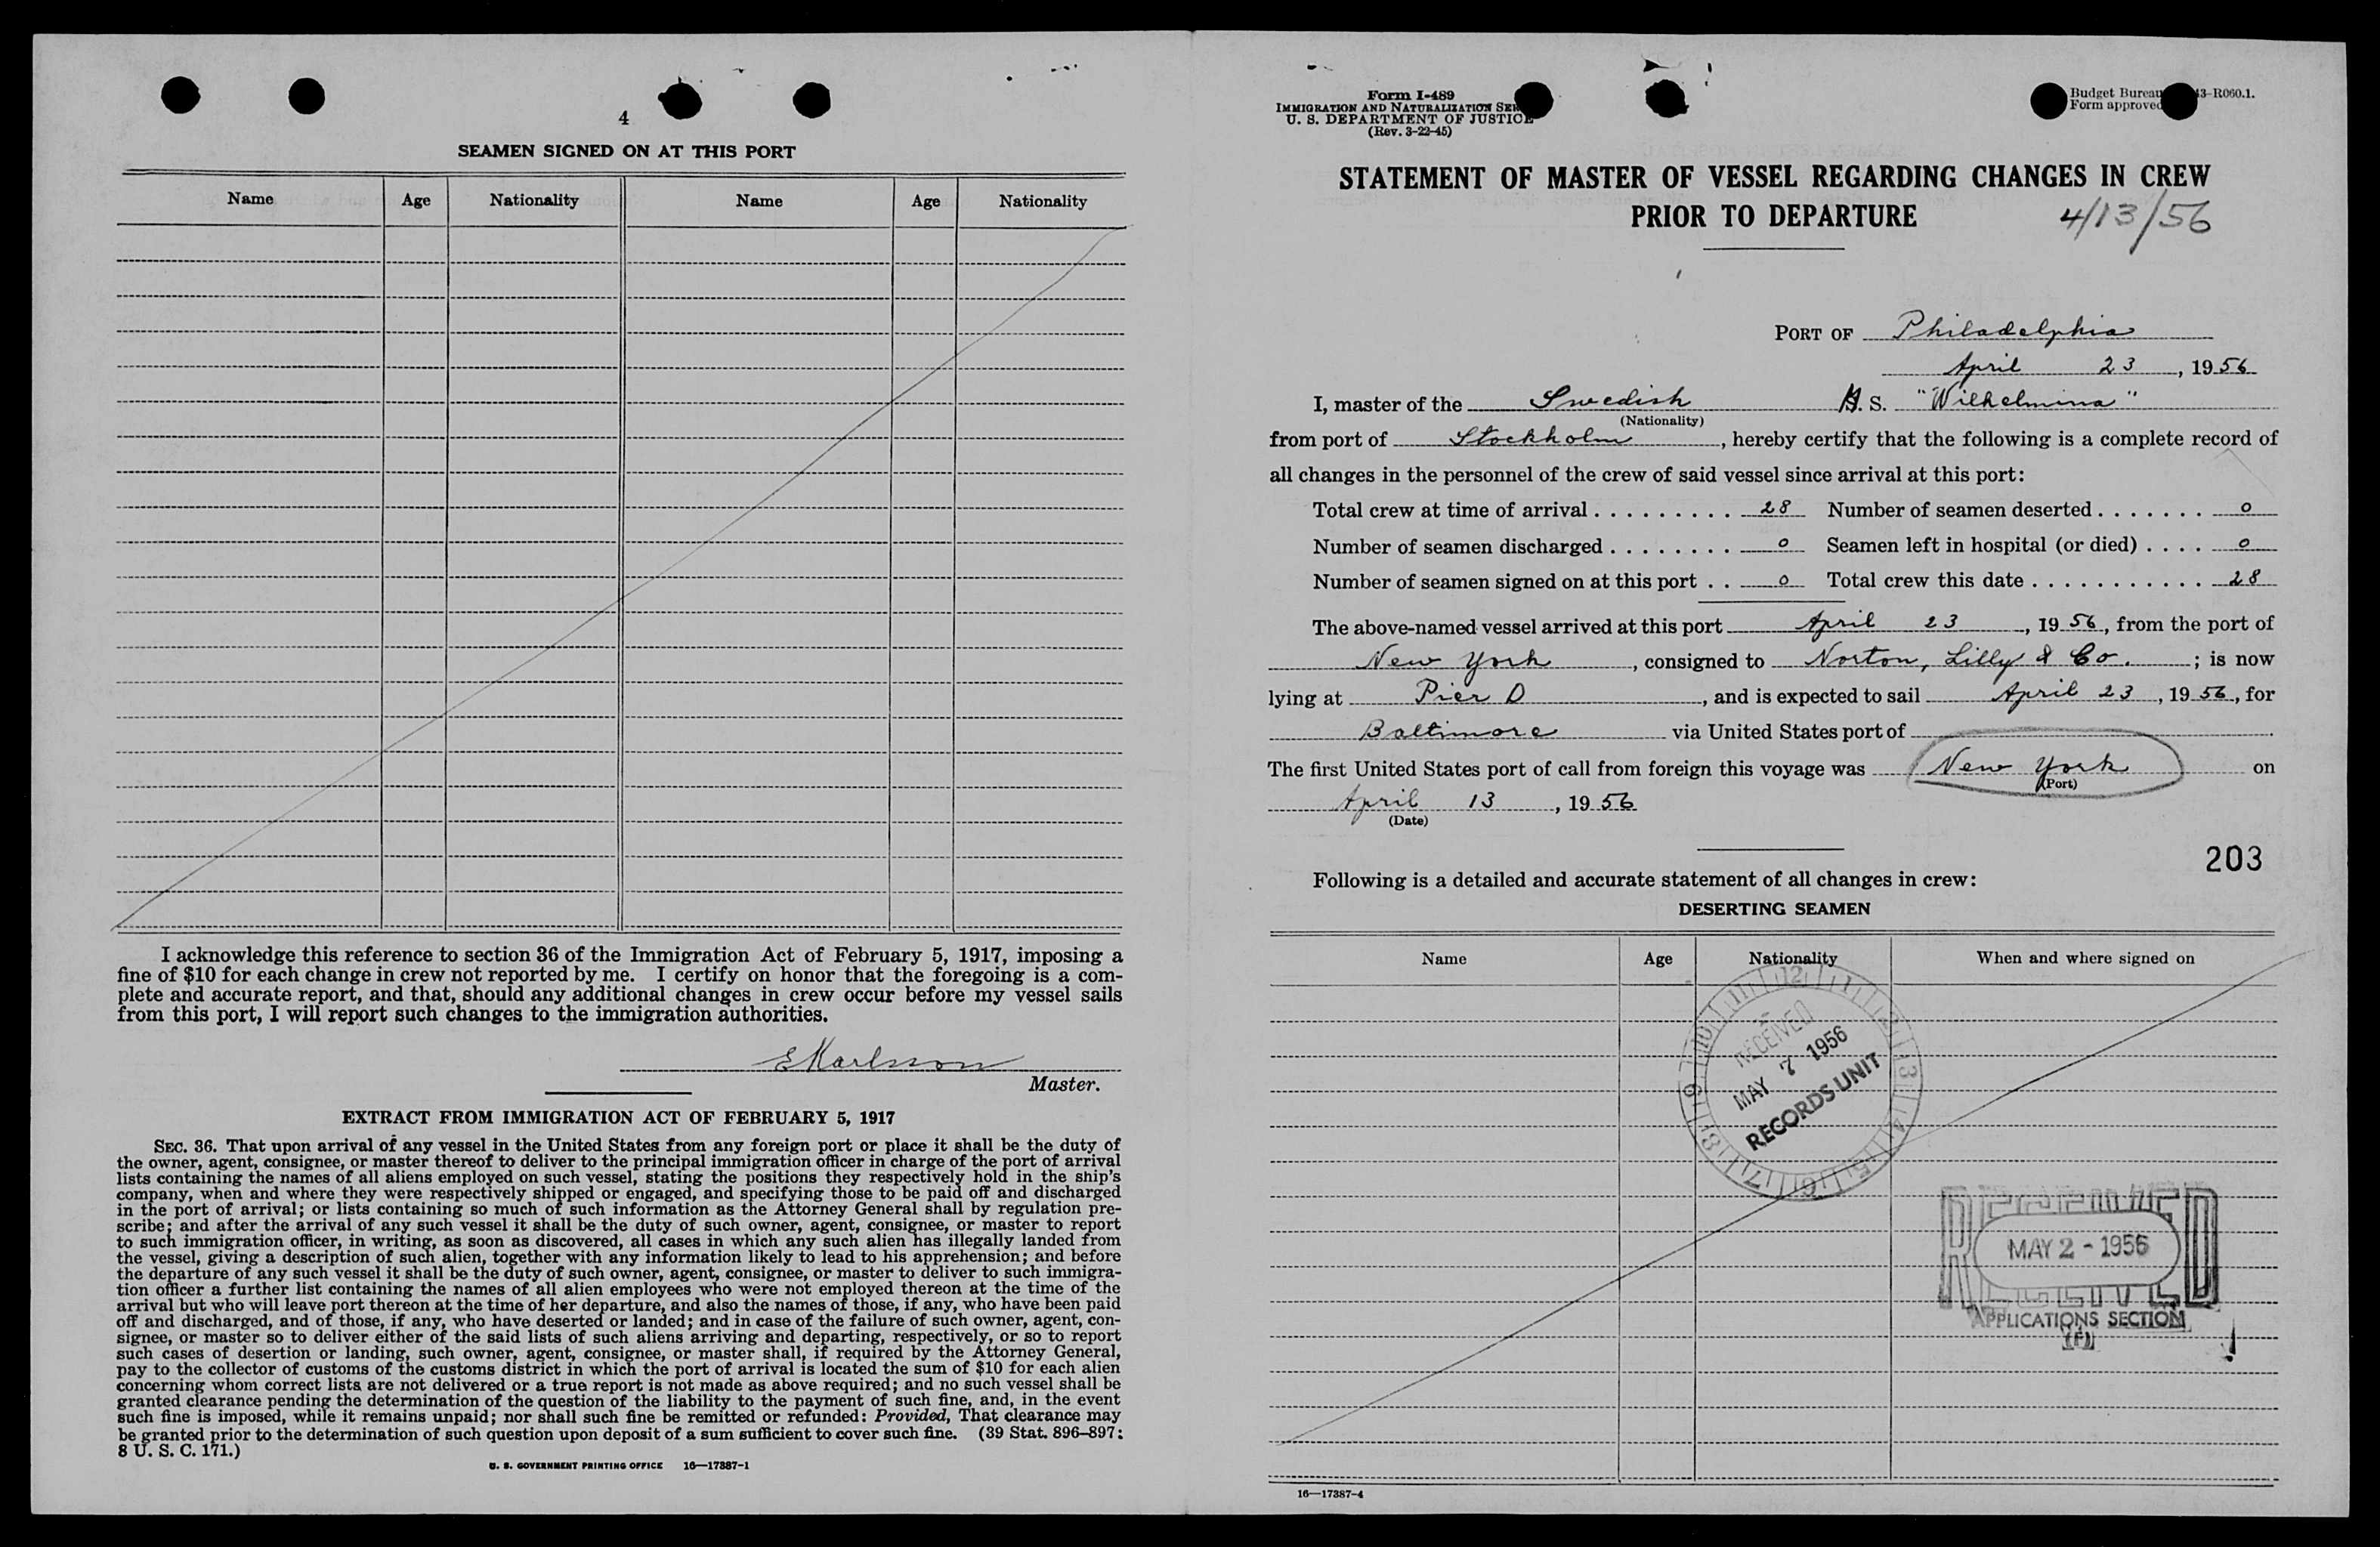 4
SEAMEN SIGNED ON AT THIS PORT
Name Age Nationality Name Age Nationality
I acknowledge this reference to section 36 of the Immigration Act of February 5, 1917, imposing a
fine of $10 for each change in crew not reported by me. I certify on honor that the foregoing is a com-
plete and accurate report, and that, should any additional changes in crew occur before my vessel sails
from this port, I will report such changes to the immigration authorities.
E Karlsson
Master.
EXTRACT FROM IMMIGRATION ACT OF FEBRUARY 5, 1917
SEC. 36. That upon arrival of any vessel in the United States from any foreign port or place it shall be the duty of
the owner, agent, consignee, or master thereof to deliver to the principal immigration officer in charge of the port of arrival
lists containing the names of all aliens employed on such vessel, stating the positions they respectively hold in the ship's
company, when and where they were respectively shipped or engaged, and specifying those to be paid off and discharged
in the port of arrival; or lists containing so much of such information as the Attorney General shall by regulation pre-
scribe; and after the arrival of any such vessel it shall be the duty of such owner, agent, consignee, or master to report
to such immigration officer, in writing, as soon as discovered, all cases in which any such alien has illegally landed from
the vessel, giving a description of such alien, together with any information likely to lead to his apprehension; and before
the departure of any such vessel it shall be the duty of such owner, agent, consignee, or master to deliver to such immigra-
tion officer a further list containing the names of all alien employees who were not employed thereon at the time of the
arrival but who will leave port thereon at the time of her departure, and also the names of those, if any, who have been paid
off and discharged, and of those, if any, who have deserted or landed; and in case of the failure of such owner, agent, con-
signee, or master so to deliver either of the said lists of such aliens arriving and departing, respectively, or so to report
such cases of desertion or landing, such owner, agent, consignee, or master shall, if required by the Attorney General,
pay to the collector of customs of the customs district in which the port of arrival is located the sum of $10 for each alien
concerning whom correct lists are not delivered or a true report is not made as above required; and no such vessel shall be
granted clearance pending the determination of the question of the liability to the payment of such fine, and, in the event
such fine is imposed, while it remains unpaid; nor shall such fine be remitted or refunded: Provided, That clearance may
be granted prior to the determination of such question upon deposit of a sum sufficient to cover such fine. (39 Stat. 896–897;
8 U. S. C. 171.)
U. S. GOVERNMENT PRINTING OFFICE 16—17387-1
Form I-489
IMMIGRATION AND NATURALIZATION SER
U. S. DEPARTMENT OF JUSTICE
(Rev. 3-22-45)
Budget Bureau 43-R060.1.
Form approved
STATEMENT OF MASTER OF VESSEL REGARDING CHANGES IN CREW
PRIOR TO DEPARTURE 4/13/56
PORT OF Philadelphia
April 23, 1956
I, master of the Swedish M. S. "Wilhelmina"
(Nationality)
from port of Stockholm, hereby certify that the following is a complete record of
all changes in the personnel of the crew of said vessel since arrival at this port:
Total crew at time of arrival . . . . . . . . . 28 Number of seamen deserted . . . . . . . 0
Number of seamen discharged . . . . . . . . 0 Seamen left in hospital (or died) . . . . 0
Number of seamen signed on at this port . . 0 Total crew this date . . . . . . . . . . . 28
The above-named vessel arrived at this port April 23, 1956, from the port of
New York, consigned to Norton, Lilly & Co. ; is now
lying at Pier D, and is expected to sail April 23, 1956, for
Baltimore via United States port of .
The first United States port of call from foreign this voyage was New York on
(Port)
April 13, 1956
(Date)
203
Following is a detailed and accurate statement of all changes in crew:
DESERTING SEAMEN
Name Age Nationality When and where signed on
12 1 2 3 4 5 6 7 8 9 10 11
RECEIVED
MAY 7 1956
RECORDS UNIT
RECEIVED
MAY 2 - 1956
APPLICATIONS SECTION
(F)
16—17387-4